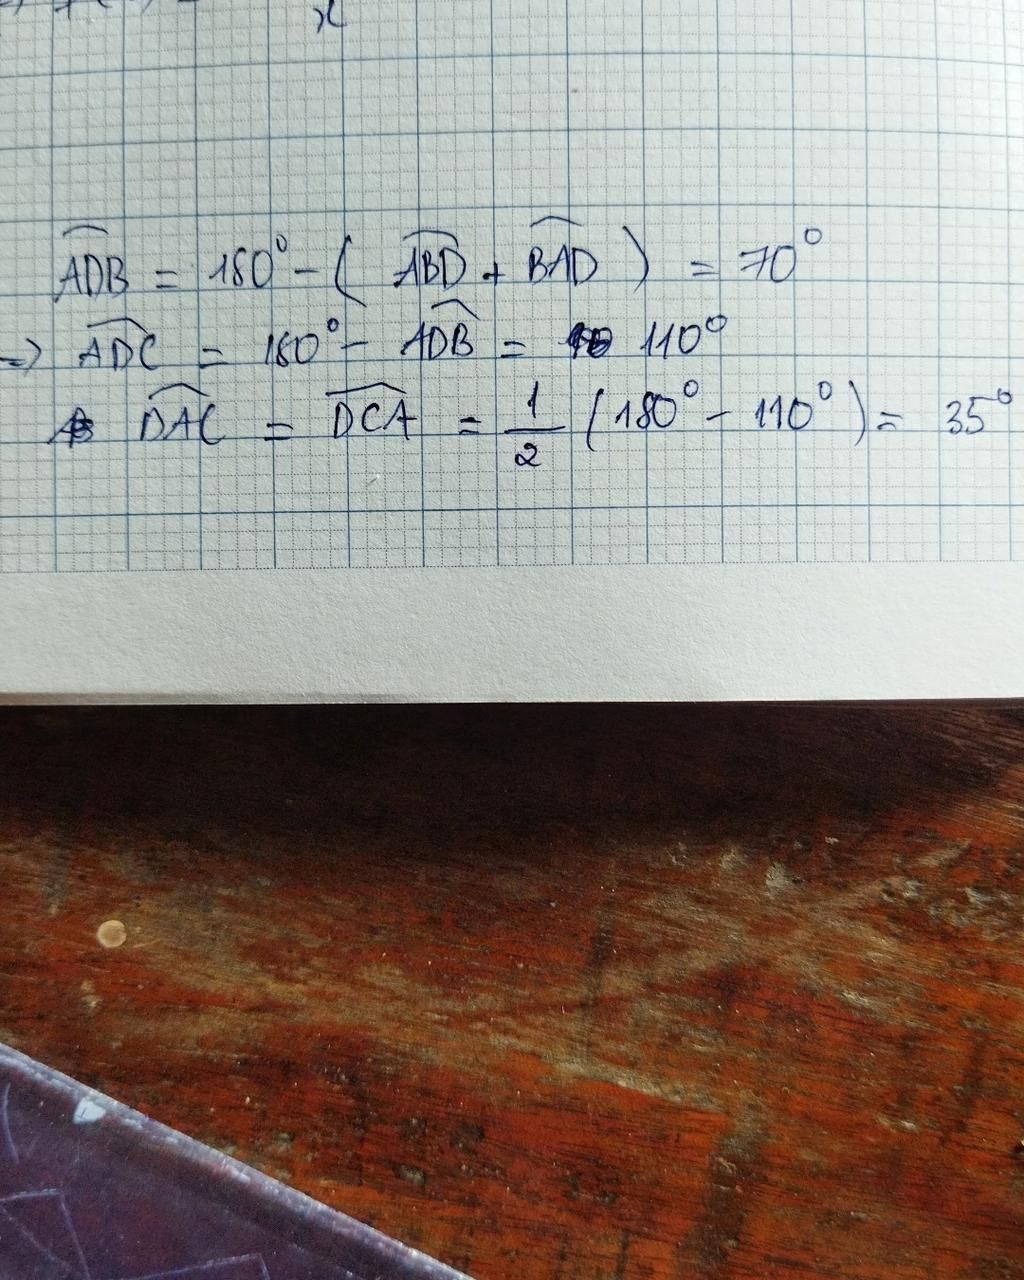 x
ADB = 180° - ( ABD + BAD ) = 70°
=> ADC = 180° - ADB = 110°
DAC = DCA = 1/2 (180° - 110°) = 35°